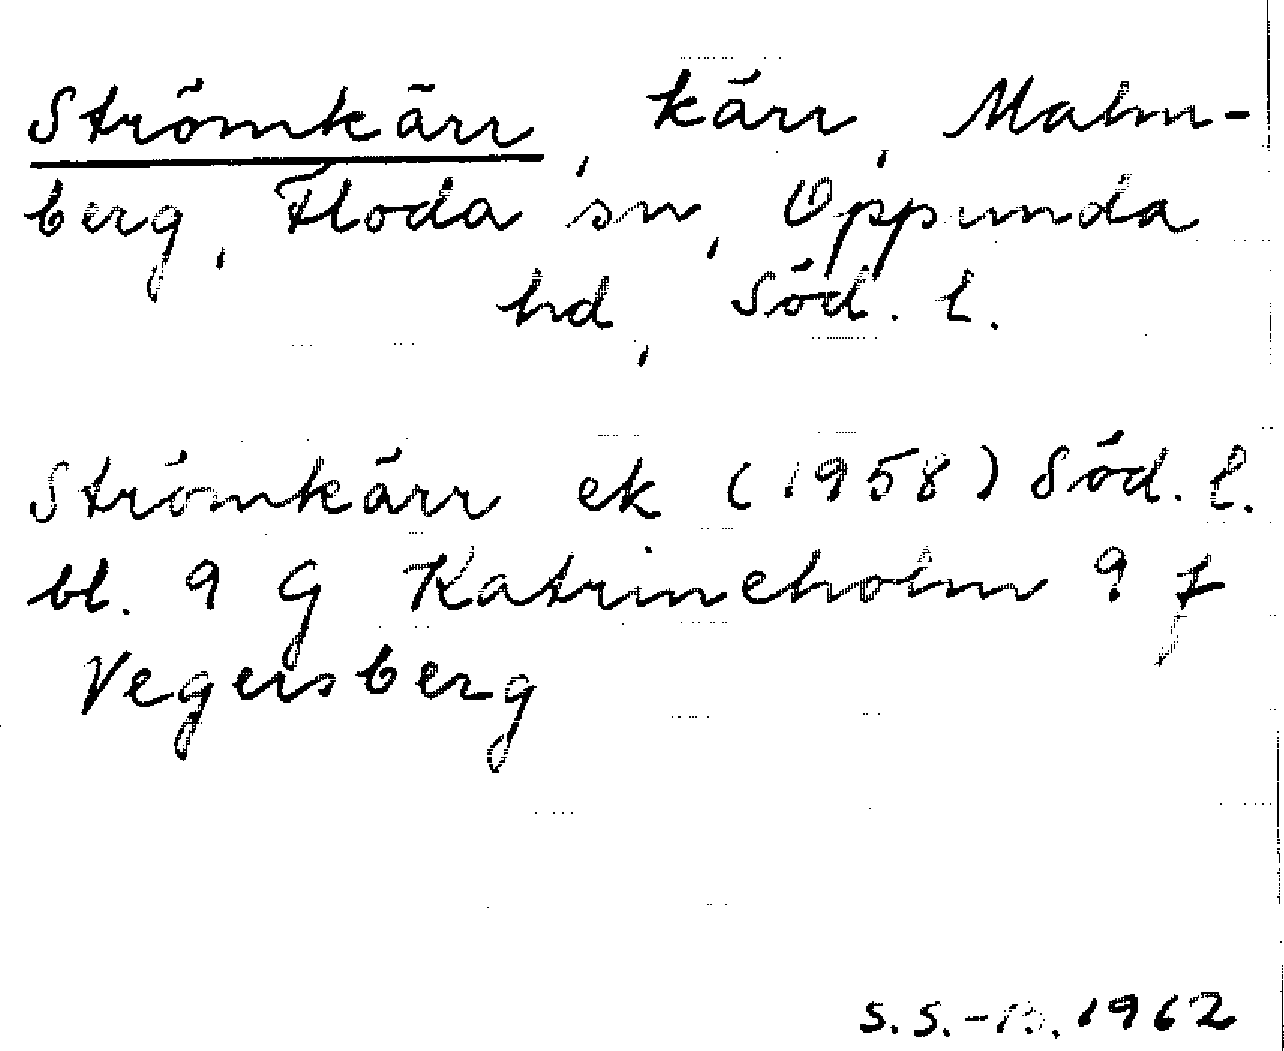 Strömkärr, kärr, Malm-
berg, Floda sn, Oppunda
hd, Söd. l.
Strömkärr ek (1958) Söd. l.
bl. 9 G Katrineholm 9 f
Vegersberg
S.S.-B. 1962